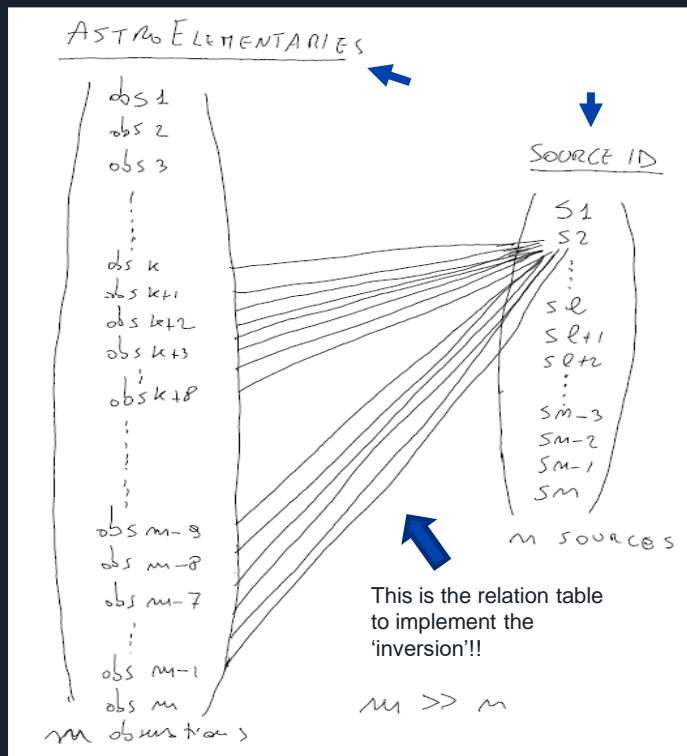 ASTRO ELEMENTARIES
obs 1
obs 2
obs 3
obs k
obs k+1
obs k+2
obs k+3
obs k+8
obs m-9
obs m-8
obs m-7
obs m-1
obs m
m observations
SOURCE ID
S1
S2
sl
sl+1
sl+2
sn-3
sn-2
sn-1
sn
n sources
This is the relation table
to implement the
‘inversion’!!
m >> n